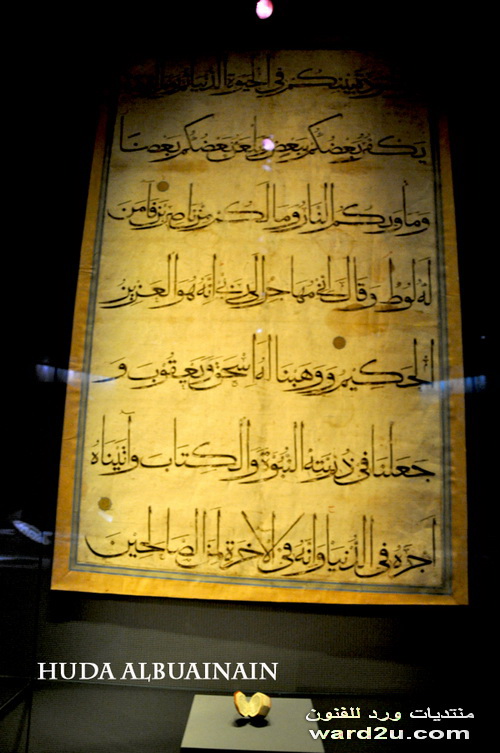 مودة بينكم في الحيوة الدنيا ثم يوم القيمة
يكفر بعضكم ببعض ويلعن بعضكم بعضا
وماويكم النار وما لكم من ناصرين فآمن
له لوط وقال اني مهاجر الى ربي انه هو العزيز
الحكيم ووهبنا له اسحق ويعقوب و
جعلنا في ذريته النبوة والكتاب وآتيناه
اجره في الدنيا وانه في الآخرة لمن الصالحين
HUDA ALBUAINAIN
منتديات ورد للفنون
ward2u.com